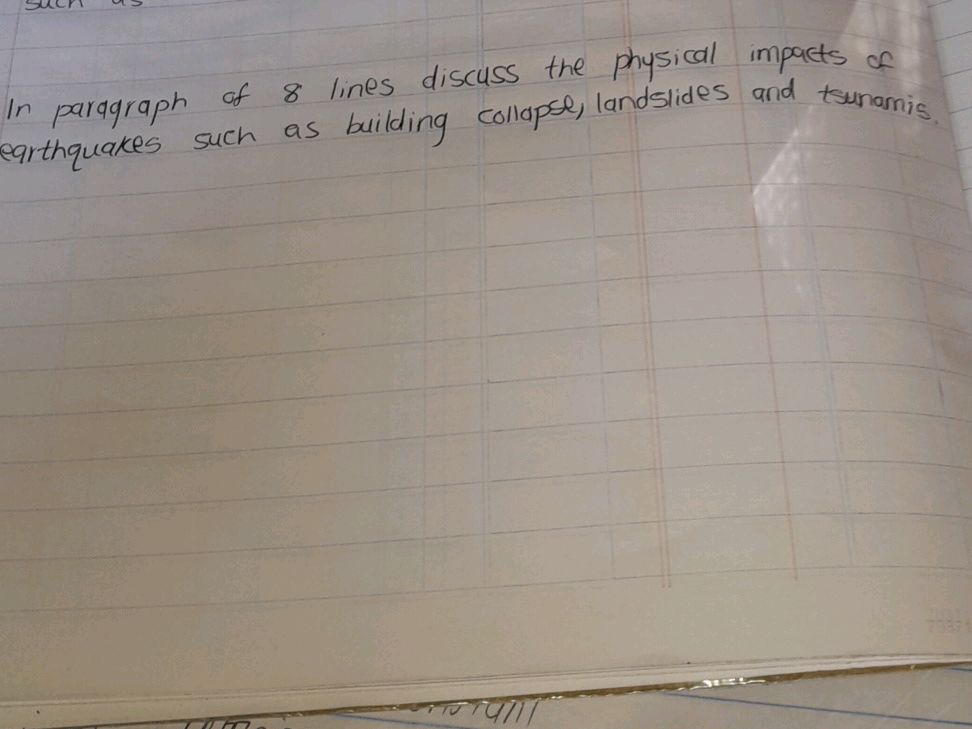 such as
In paragraph of 8 lines discuss the physical impacts of
earthquakes such as building collapse, landslides and tsunamis.